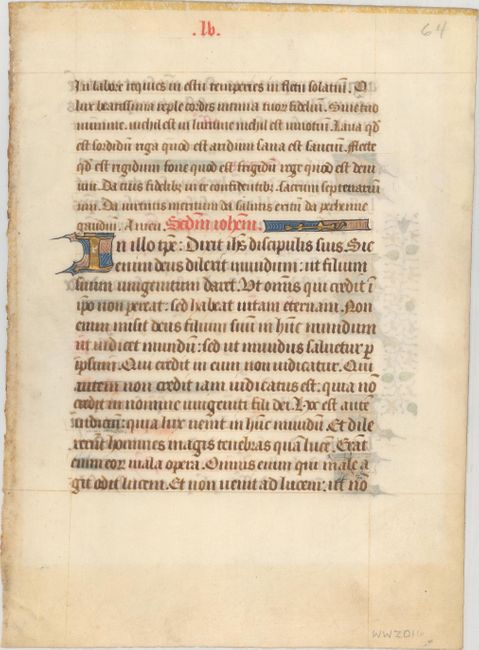 .lb.
64
In labore requies in estu temperies in fletu solatiu᷑. O
lux beatissima reple cordis intima tuor᷑ fidelium. Sine tuo
numine nichil est in lumine nichil est innoxiu᷑. Laua qd᷑
est sordidu᷑ riga quod est aridum sana est sauciu᷑. Flecte
qd᷑ est rigidum foue quod est frigidu᷑ rege quod est deui
um. Da tuis fidelib᷑ in te confidentib᷑ sacrum septenariu᷑
Da uirtutis meritum da salutis exitu᷑ da perhenne
gaudiu᷑. Amen. Sedm᷑ iohem᷑.
In illo tp᷑e: Dixit ih᷑s discipulis suis. Sic
enim deus dilexit mundum: ut filium
suum unigenitum daret. Vt omnis qui credit i᷑
ip᷑o non pereat: sed habeat uitam eternam. Non
enim misit deus filium suu᷑ in hu᷑c mundum
ut iudicet mundu᷑: sed ut mundus saluetur p᷑
ipsum. Qui credit in eum non iudicatur. Qui
autem non credit iam iudicatus est: quia no᷑
credit in nomine unigeniti filii dei. Hec est aute᷑
iudiciu᷑: quia lux uenit in hu᷑c mundu᷑. Et dile
xerunt homines magis tenebras qua᷑ luce᷑. Era᷑t
enim eor᷑ mala opera. Omnis enim qui male a
git odit lucem. Et non uenit ad lucem: ut no᷑